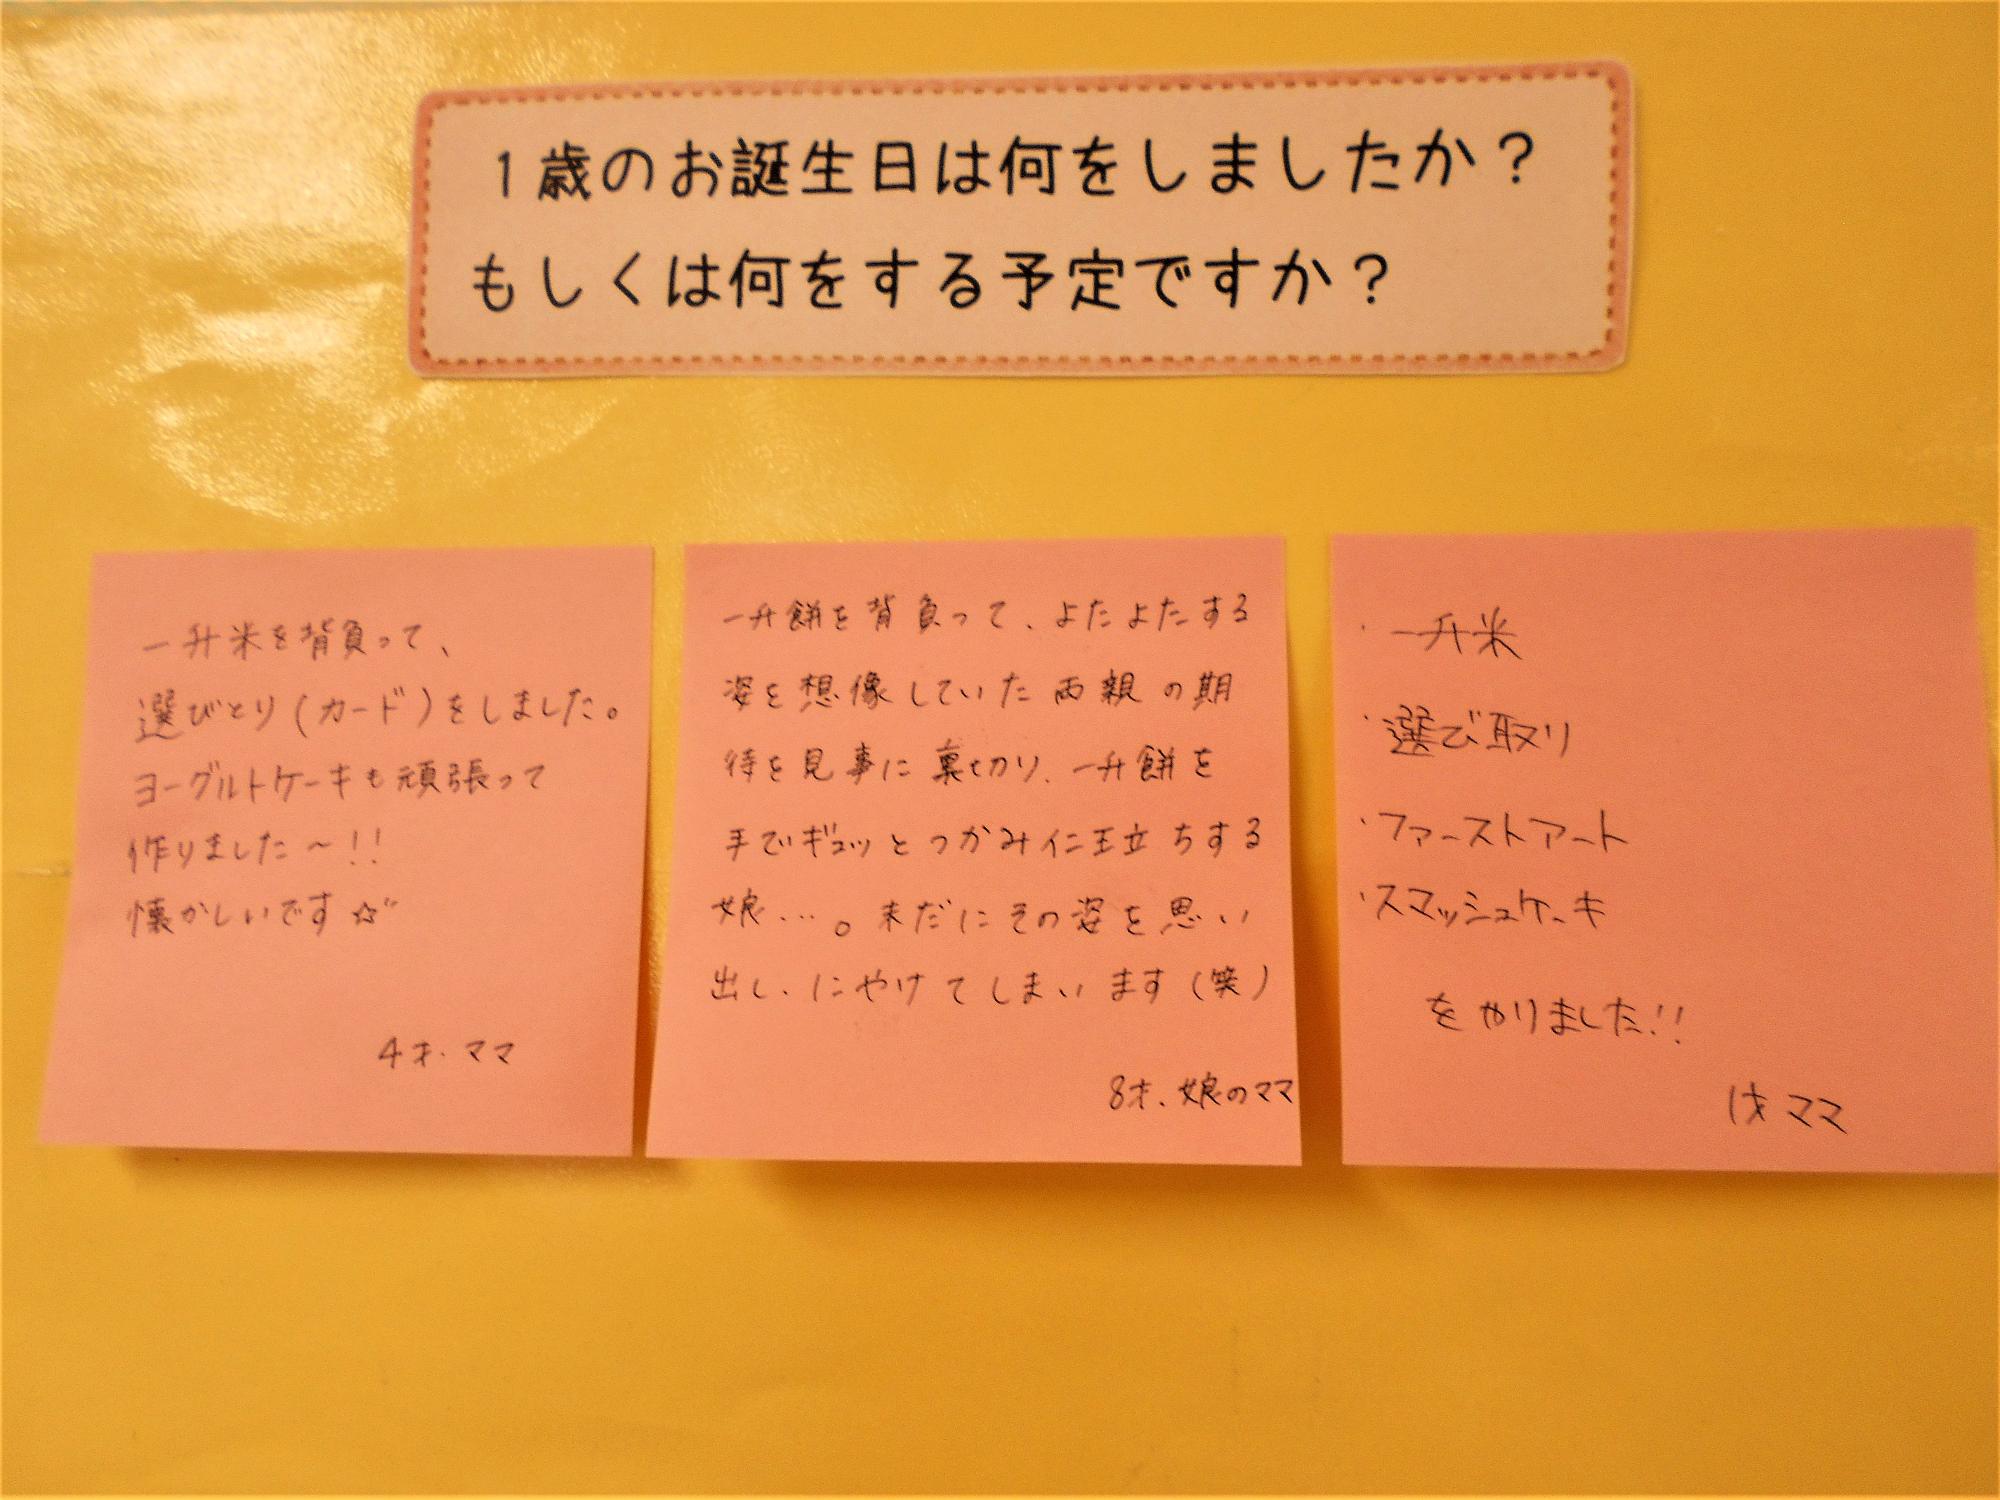 1歳のお誕生日は何をしましたか？
もしくは何をする予定ですか？
一升米を背負って、
選びとり(カード)をしました。
ヨーグルトケーキも頑張って
作りました～!!
懐かしいです☆
4才.ママ
一升餅を背負って、よたよたする
姿を想像していた両親の期
待を見事に裏切り、一升餅を
手でギュッとつかみ仁王立ちする
娘…。未だにその姿を思い
出し、にやけてしまいます(笑)
8才、娘のママ
・一升米
・選び取り
・ファーストアート
・スマッシュケーキ
をやりました!!
1才ママ